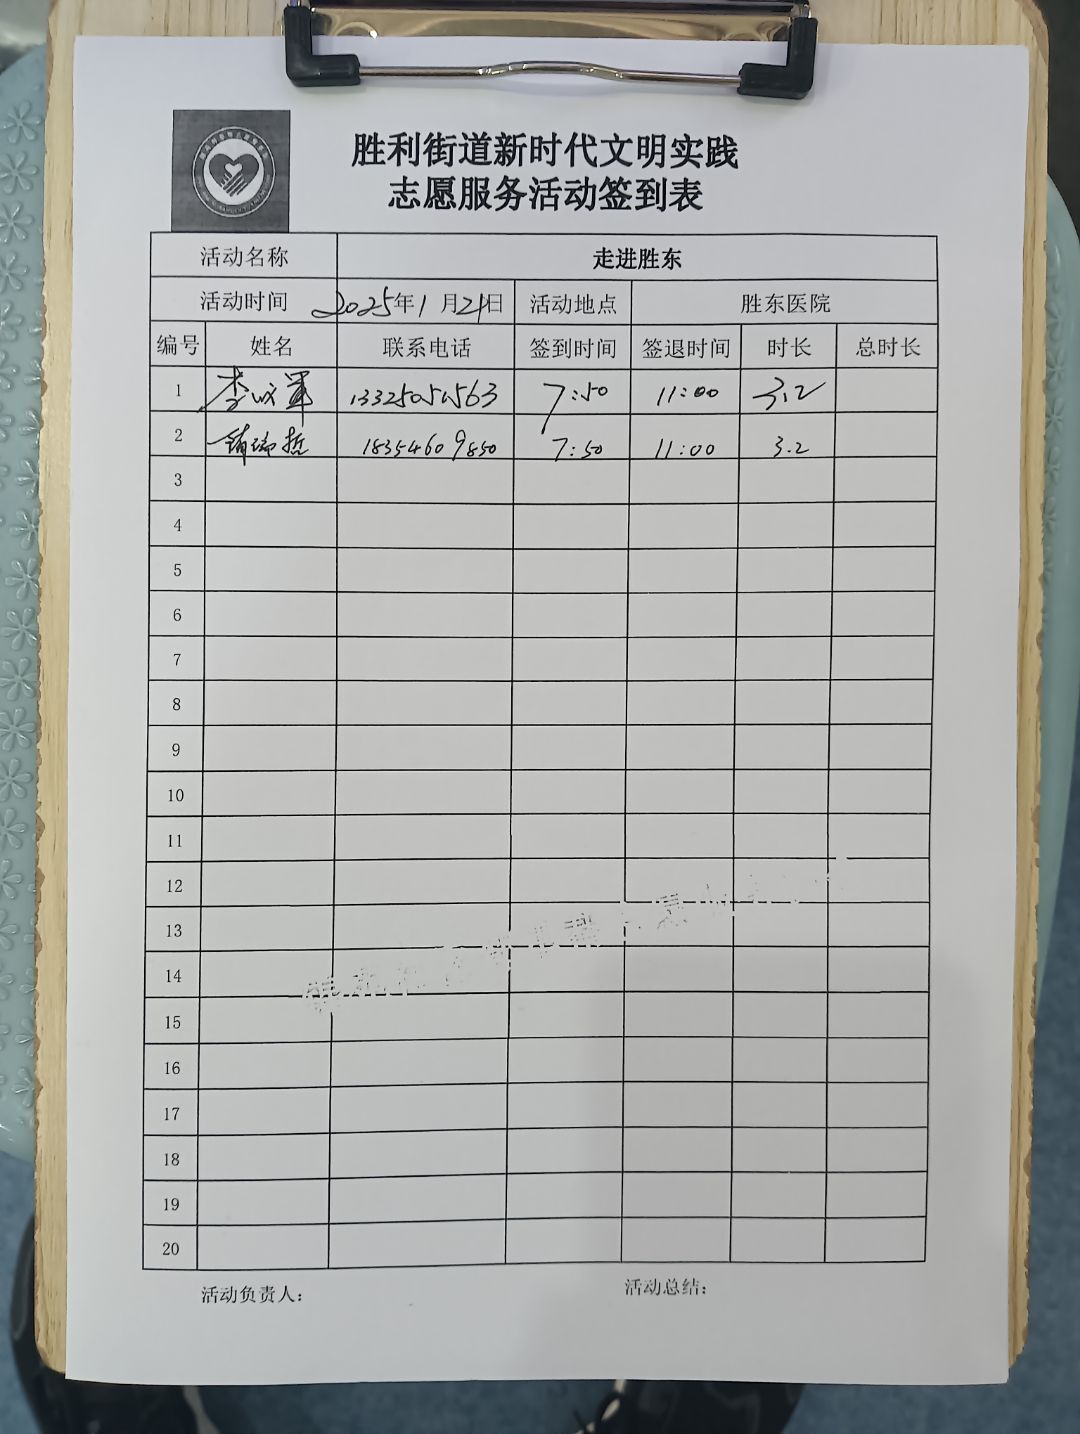 胜利街道新时代文明实践
志愿服务活动签到表
活动名称 走进胜东
活动时间 2025年1月21日 活动地点 胜东医院
编号 姓名 联系电话 签到时间 签退时间 时长 总时长
1 李 军 7:50 11:00 3.2
2 18354609850 7:50 11:00 3.2
3
4
5
6
7
8
9
10
11
12
13
14
15
16
17
18
19
20
活动负责人: 活动总结: